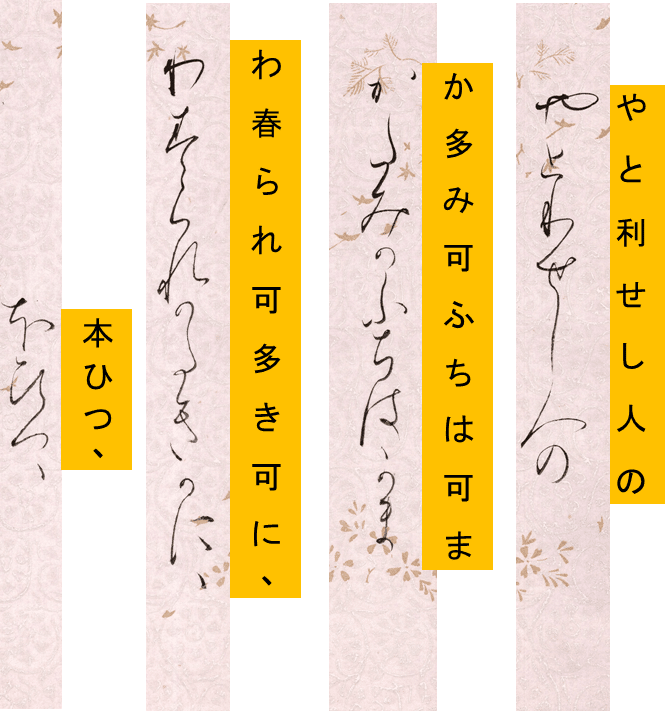 や と 利 せ し 人 の
か 多 み 可 ふ ち は 可 ま
わ 春 ら れ 可 多 き 可 に 、
本 ひ つ 、